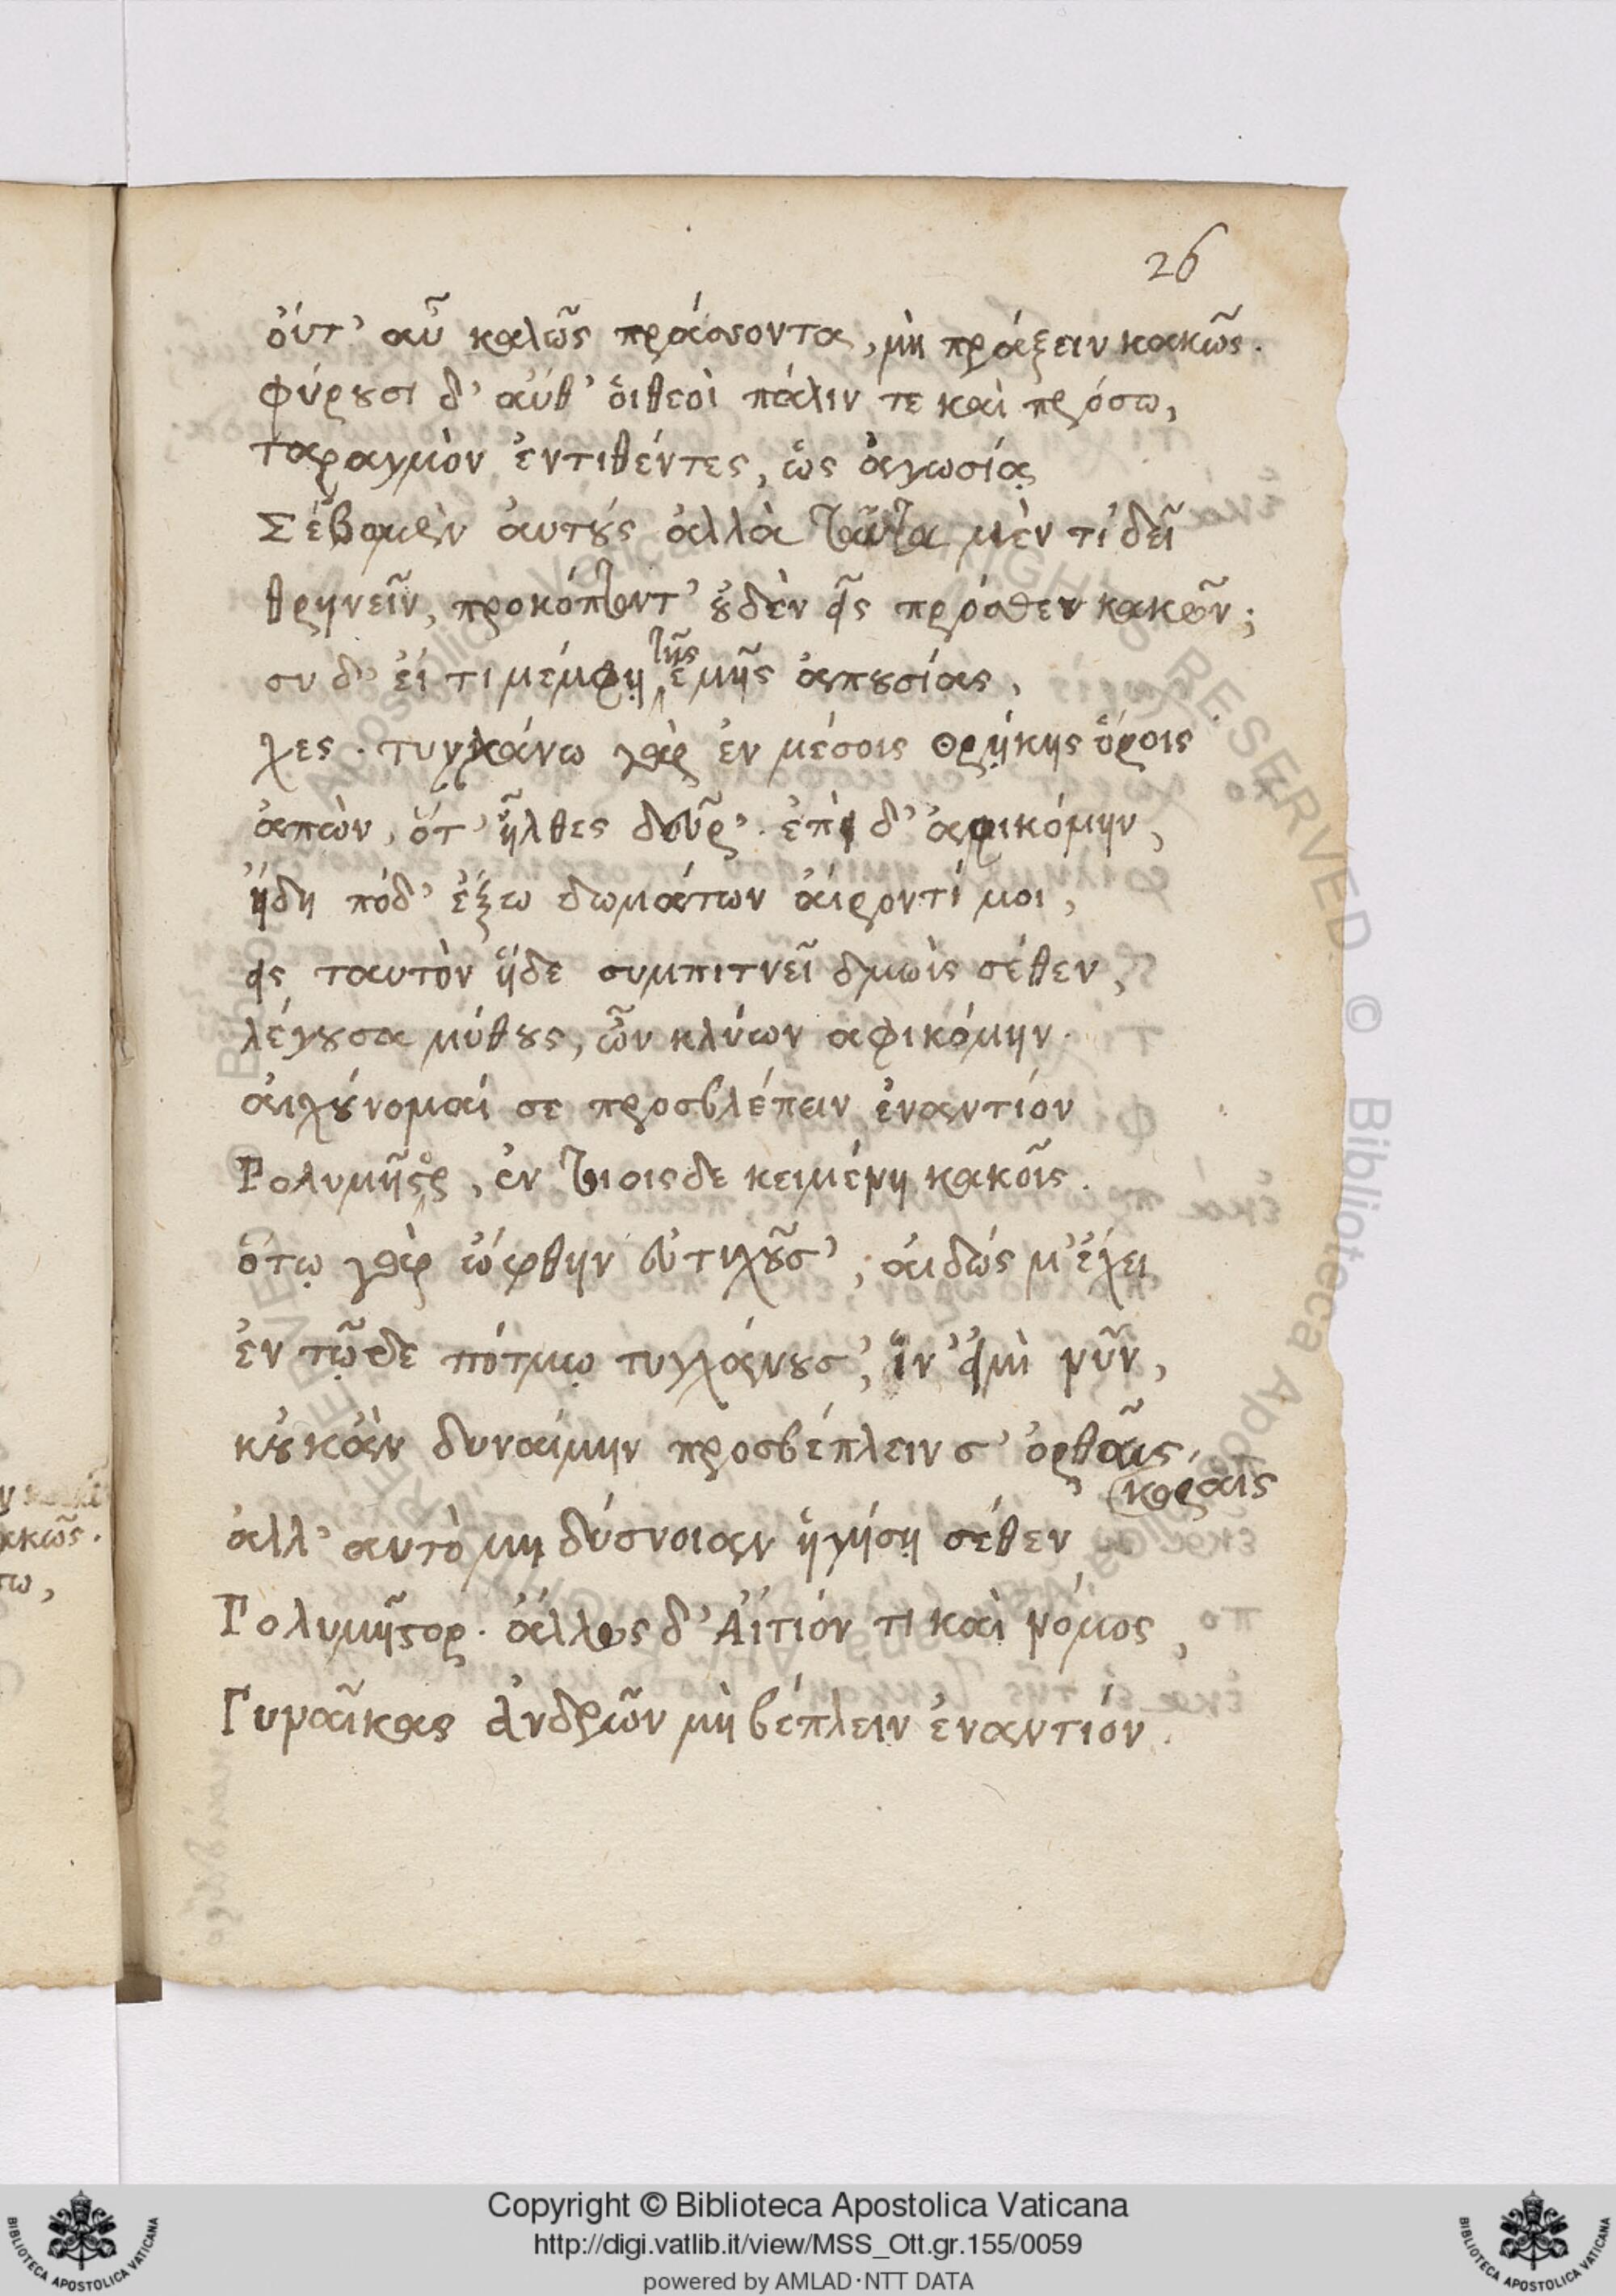 26
ὀύτ' αὖ καλῶς πράσσοντα, μὴ πράξειν κακῶς.
φύρουσι δ' αὐθ' ὁιθεοὶ πάλιν τε καὶ πρόσω,
ταραγμὸν ἐντιθέντες, ὡς ἀγνωσίᾳ
Σέβωμεν ἀυτούς ἀλλὰ ταῦτα μὲν τί δεῖ
θρηνεῖν, προκόπτοντ' οὐδὲν εἰς πρόσθεν κακῶν;
συ δ' ἐί τι μέμφῃ τῆς ἐμῆς ἀπουσίας,
χες. τυγχάνω γὰρ ἐν μέσοις Θρῄκης ὅροις
ἀπὼν, ὅτ' ἦλθες δεῦρ'. ἐπὶ δ' ἀφικόμην,
ἤδη πόδ' ἔξω δωμάτων ἀίροντί μοι,
εἰς ταυτὸν ἥδε συμπιτνεῖ δμωὶς σέθεν,
λέγουσα μύθους, ὧν κλύων αφικόμην.
ἀισχύνομαί σε προσβλέπειν ἐναντίον
Πολυμῆστορ, ἐν τοιοισδε κειμένη κακοῖς.
ὅτῳ γὰρ ὤφθην ἐυτυχοῦσ', ἀιδώς μ' ἔχει
ἐν τῷδε πότμῳ τυγχάνουσ', ἵν' εἰμὶ νῦν,
κοὐκ ἂν δυναίμην προσβέπλειν σ' ὀρθαῖς
κόραις
ἀλλ' αυτὸ μη δύσνοιαν ἡγήσῃ σέθεν
Πολυμῆστορ. ἄλλως δ' Ἀίτιόν τι καὶ νόμος,
Γυναῖκας ἀνδρῶν μὴ βέπλειν ἐναντίον.
Copyright © Biblioteca Apostolica Vaticana
http://digi.vatlib.it/view/MSS_Ott.gr.155/0059
powered by AMLAD·NTT DATA